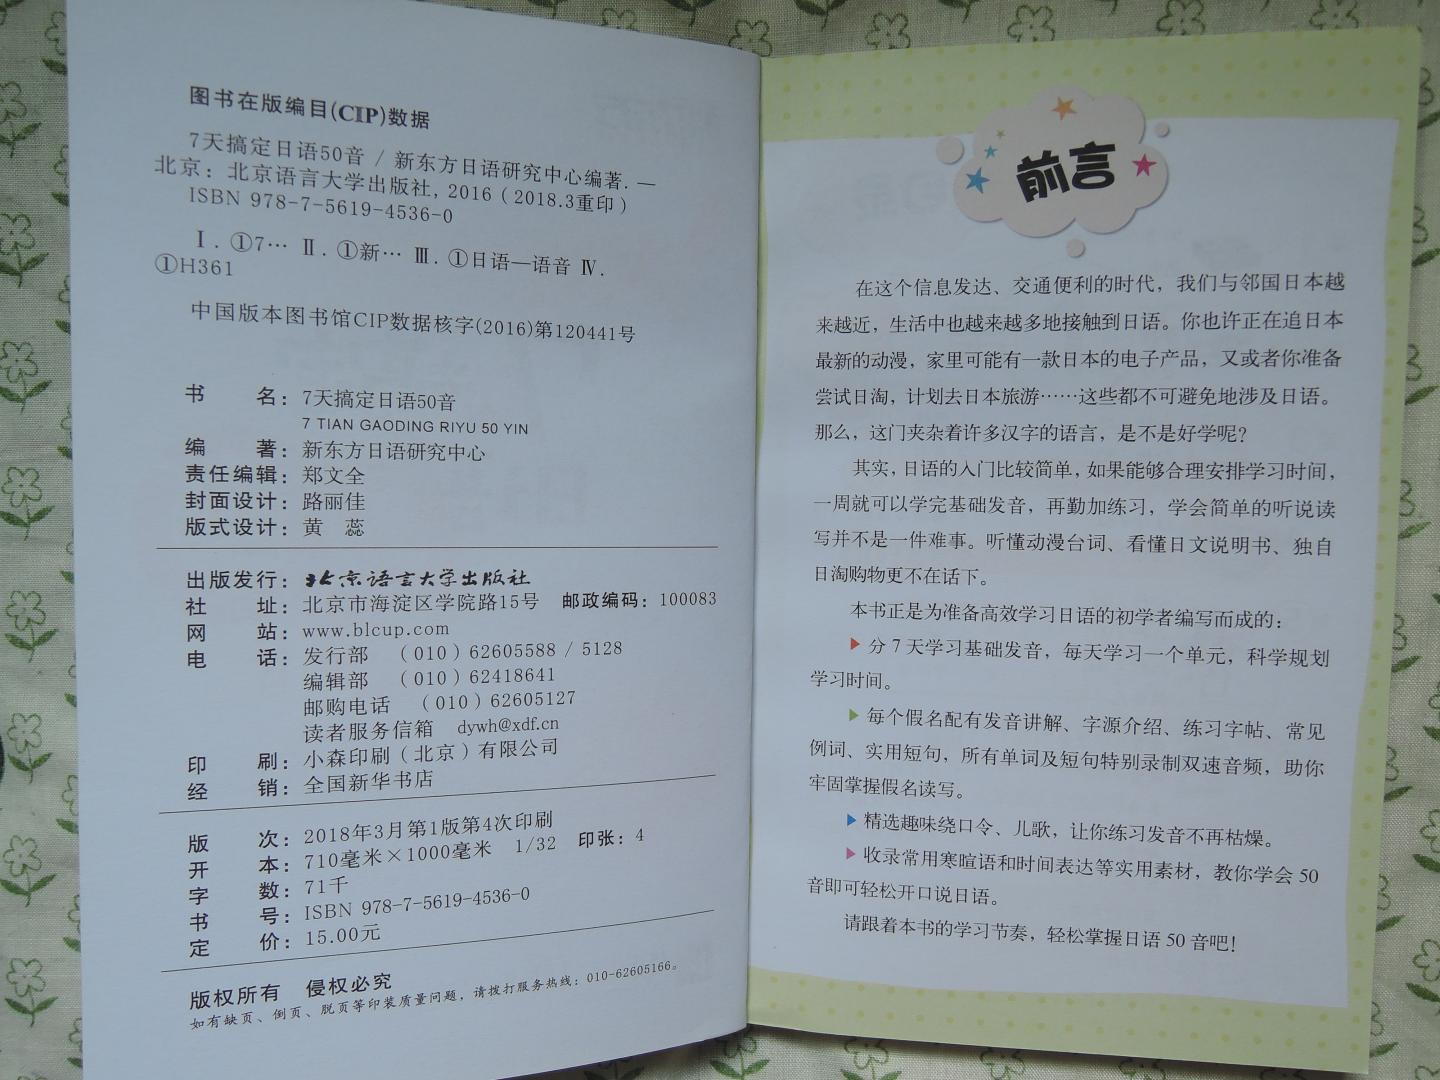 图书在版编目(CIP)数据
7天搞定日语50音 / 新东方日语研究中心编著. —
北京：北京语言大学出版社, 2016（2018.3重印）
ISBN 978-7-5619-4536-0
Ⅰ. ①7… Ⅱ. ①新… Ⅲ. ①日语—语音 Ⅳ.
①H361
中国版本图书馆CIP数据核字(2016)第120441号
书 名：7天搞定日语50音
7 TIAN GAODING RIYU 50 YIN
编 著：新东方日语研究中心
责任编辑：郑文全
封面设计：路丽佳
版式设计：黄 蕊
出版发行：北京语言大学出版社
社 址：北京市海淀区学院路15号 邮政编码：100083
网 站：www.blcup.com
电 话：发行部 （010）62605588 / 5128
编辑部 （010）62418641
邮购电话 （010）62605127
读者服务信箱 dywh@xdf.cn
印 刷：小森印刷（北京）有限公司
经 销：全国新华书店
版 次：2018年3月第1版第4次印刷
开 本：710毫米×1000毫米 1/32 印张：4
字 数：71千
书 号：ISBN 978-7-5619-4536-0
定 价：15.00元
版权所有 侵权必究
如有缺页、倒页、脱页等印装质量问题，请拨打服务热线：010-62605166。
前言
在这个信息发达、交通便利的时代，我们与邻国日本越
来越近，生活中也越来越多地接触到日语。你也许正在追日本
最新的动漫，家里可能有一款日本的电子产品，又或者你准备
尝试日淘，计划去日本旅游……这些都不可避免地涉及日语。
那么，这门夹杂着许多汉字的语言，是不是好学呢？
其实，日语的入门比较简单，如果能够合理安排学习时间，
一周就可以学完基础发音，再勤加练习，学会简单的听说读
写并不是一件难事。听懂动漫台词、看懂日文说明书、独自
日淘购物更不在话下。
本书正是为准备高效学习日语的初学者编写而成的：
▶ 分 7 天学习基础发音，每天学习一个单元，科学规划
学习时间。
▶ 每个假名配有发音讲解、字源介绍、练习字帖、常见
例词、实用短句，所有单词及短句特别录制双速音频，助你
牢固掌握假名读写。
▶ 精选趣味绕口令、儿歌，让你练习发音不再枯燥。
▶ 收录常用寒暄语和时间表达等实用素材，教你学会 50
音即可轻松开口说日语。
请跟着本书的学习节奏，轻松掌握日语 50 音吧！